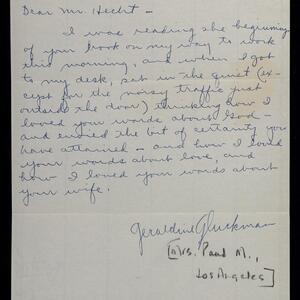 Dear Mr. Hecht –
I was reading the beginning
of your book on my way to work
this morning, and when I got
to my desk, sat in the quiet (ex-
cept for the noisy traffic just
outside the door) thinking how I
loved your words about God –
and envied the bit of certainty you
have attained – and how I loved
your words about love, and
how I loved your words about
your wife.
Geraldine Gluckman
[Mrs. Paul M.,
Los Angeles]